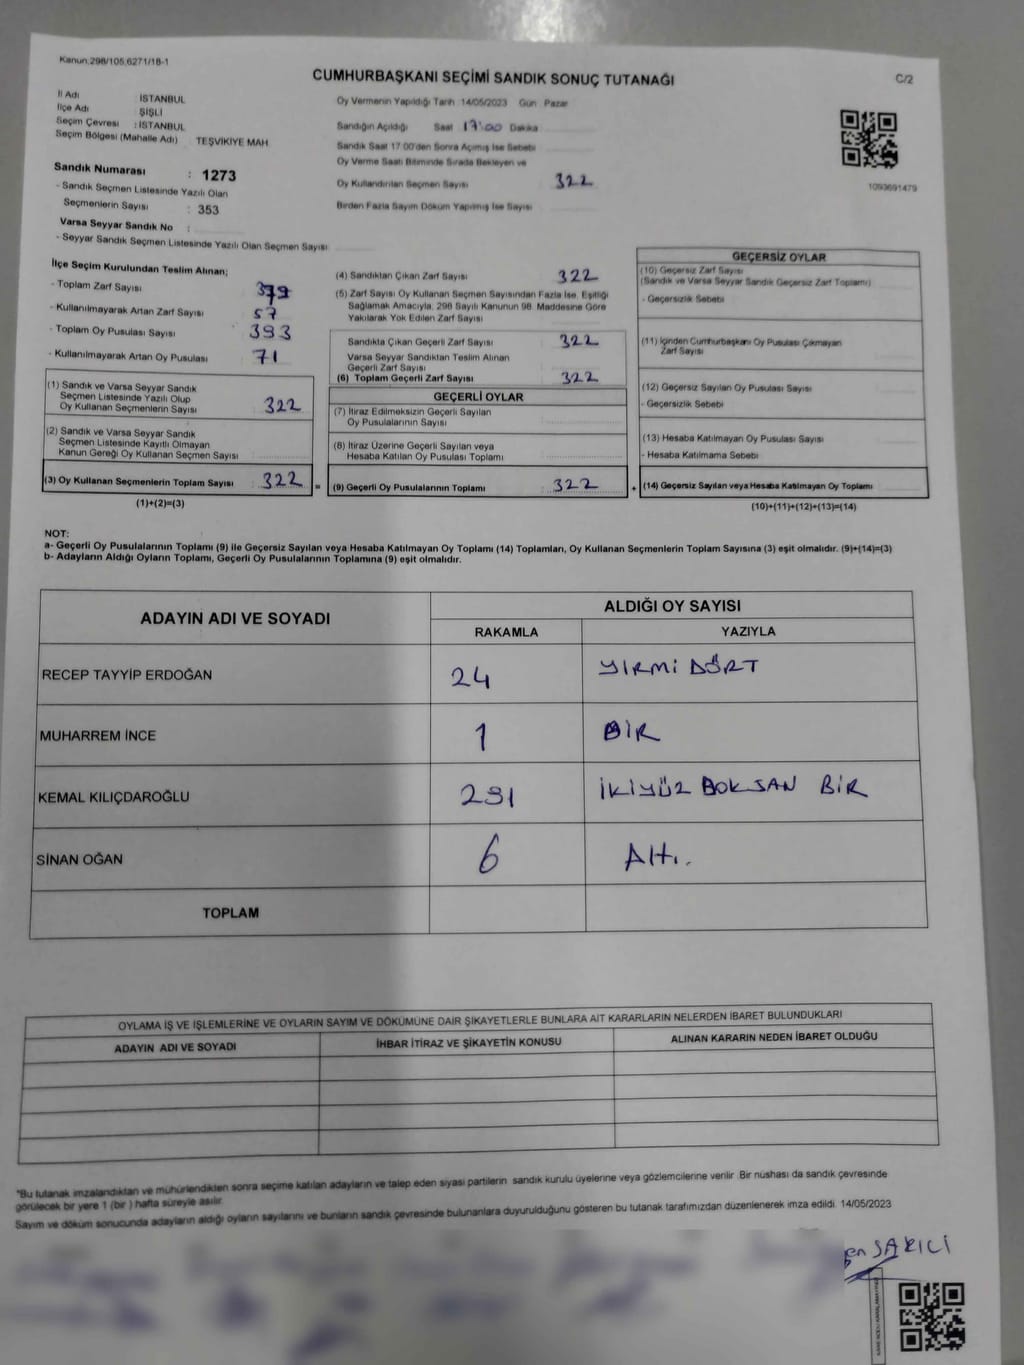 Kanun.298/105,6271/18-1
CUMHURBAŞKANI SEÇİMİ SANDIK SONUÇ TUTANAĞI
C/2
İl Adı : İSTANBUL
İlçe Adı : ŞİŞLİ
Seçim Çevresi : İSTANBUL
Seçim Bölgesi (Mahalle Adı) TEŞVİKİYE MAH.
Sandık Numarası : 1273
- Sandık Seçmen Listesinde Yazılı Olan
Seçmenlerin Sayısı : 353
Varsa Seyyar Sandık No :
- Seyyar Sandık Seçmen Listesinde Yazılı Olan Seçmen Sayısı
Oy Vermenin Yapıldığı Tarih :14/05/2023 Gün Pazar
Sandığın Açıldığı Saat 17:00 Dakika
Sandık Saat 17:00'den Sonra Açımış İse Sebebi
Oy Verme Saati Bitiminde Sırada Bekleyen ve
Oy Kullandırılan Seçmen Sayısı 322
Birden Fazla Sayım Döküm Yapılmış İse Sayısı
1093691479
İlçe Seçim Kurulundan Teslim Alınan;
- Toplam Zarf Sayısı 379
- Kullanılmayarak Artan Zarf Sayısı 57
- Toplam Oy Pusulası Sayısı 393
- Kullanılmayarak Artan Oy Pusulası 71
(1) Sandık ve Varsa Seyyar Sandık
Seçmen Listesinde Yazılı Olup
Oy Kullanan Seçmenlerin Sayısı 322
(2) Sandık ve Varsa Seyyar Sandık
Seçmen Listesinde Kayıtlı Olmayan
Kanun Gereği Oy Kullanan Seçmen Sayısı
(3) Oy Kullanan Seçmenlerin Toplam Sayısı 322
(1)+(2)=(3)
=
(4) Sandıktan Çıkan Zarf Sayısı 322
(5) Zarf Sayısı Oy Kullanan Seçmen Sayısından Fazla İse, Eşitliği
Sağlamak Amacıyla, 298 Sayılı Kanunun 98. Maddesine Göre
Yakılarak Yok Edilen Zarf Sayısı
Sandıkta Çıkan Geçerli Zarf Sayısı 322
Varsa Seyyar Sandıktan Teslim Alınan
Geçerli Zarf Sayısı
(6) Toplam Geçerli Zarf Sayısı 322
GEÇERLİ OYLAR
(7) İtiraz Edilmeksizin Geçerli Sayılan
Oy Pusulalarının Sayısı
(8) İtiraz Üzerine Geçerli Sayılan veya
Hesaba Katılan Oy Pusulası Toplamı
(9) Geçerli Oy Pusulalarının Toplamı 322
+
GEÇERSİZ OYLAR
(10) Geçersiz Zarf Sayısı
(Sandık ve Varsa Seyyar Sandık Geçersiz Zarf Toplamı)
- Geçersizlik Sebebi
(11) İçinden Cumhurbaşkanı Oy Pusulası Çıkmayan
Zarf Sayısı
(12) Geçersiz Sayılan Oy Pusulası Sayısı
- Geçersizlik Sebebi
(13) Hesaba Katılmayan Oy Pusulası Sayısı
- Hesaba Katılmama Sebebi
(14) Geçersiz Sayılan veya Hesaba Katılmayan Oy Toplamı
(10)+(11)+(12)+(13)=(14)
NOT:
a- Geçerli Oy Pusulalarının Toplamı (9) ile Geçersiz Sayılan veya Hesaba Katılmayan Oy Toplamı (14) Toplamları, Oy Kullanan Seçmenlerin Toplam Sayısına (3) eşit olmalıdır. (9)+(14)=(3)
b- Adayların Aldığı Oyların Toplamı, Geçerli Oy Pusulalarının Toplamına (9) eşit olmalıdır.
ADAYIN ADI VE SOYADI
ALDIĞI OY SAYISI
RAKAMLA YAZIYLA
RECEP TAYYİP ERDOĞAN 24 YİRMİ DÖRT
MUHARREM İNCE 1 BİR
KEMAL KILIÇDAROĞLU 291 İKİYÜZ DOKSAN BİR
SİNAN OĞAN 6 Altı.
TOPLAM
OYLAMA İŞ VE İŞLEMLERİNE VE OYLARIN SAYIM VE DÖKÜMÜNE DAİR ŞİKAYETLERLE BUNLARA AİT KARARLARIN NELERDEN İBARET BULUNDUKLARI
ADAYIN ADI VE SOYADI İHBAR İTİRAZ VE ŞİKAYETİN KONUSU ALINAN KARARIN NEDEN İBARET OLDUĞU
*Bu tutanak imzalandıktan ve mühürlendikten sonra seçime katılan adayların ve talep eden siyasi partilerin sandık kurulu üyelerine veya gözlemcilerine verilir. Bir nüshası da sandık çevresinde
görülecek bir yere 1 (bir) hafta süreyle asılır.
Sayım ve döküm sonucunda adayların aldığı oyların sayılarını ve bunların sandık çevresinde bulunanlara duyurulduğunu gösteren bu tutanak tarafımızdan düzenlenerek imza edildi. 14/05/2023